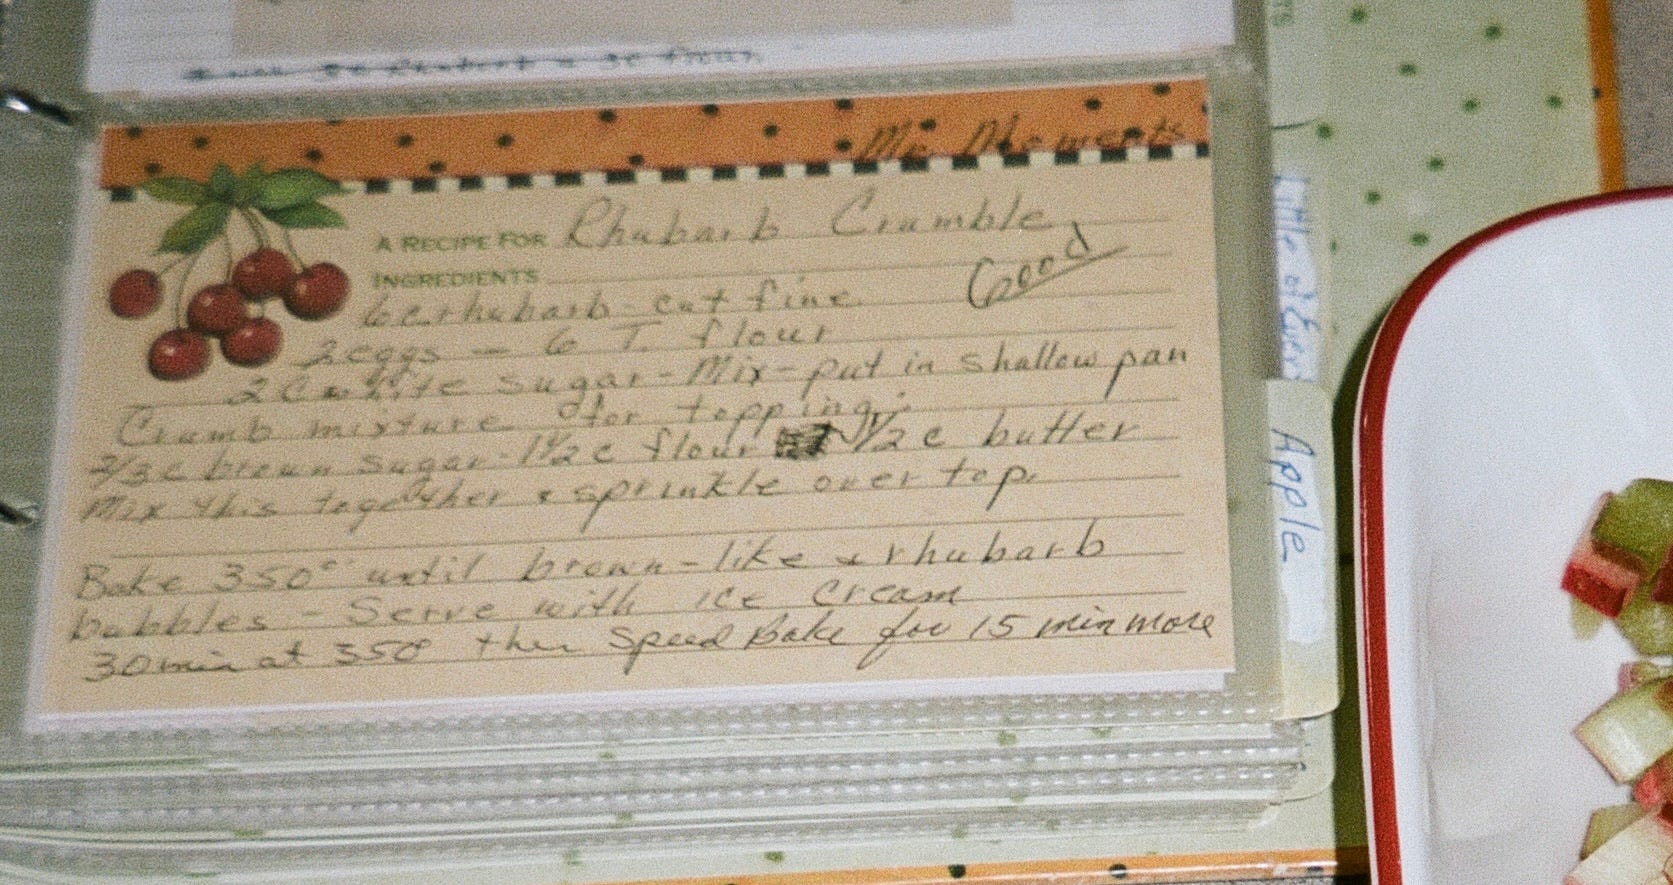 Rhubarb Crumble
A RECIPE FOR
Good
INGREDIENTS
6c rhubarb - cut fine
2 eggs - 6 T. flour
2 C white sugar - Mix - put in shallow pan
Crumb mixture for topping:
2/3 c brown sugar - 1 1/2 c flour 1/2 c butter
Mix this together & sprinkle over top.
Bake 350° until brown - like & rhubarb
bubbles - Serve with ice cream
30 min at 350° then Speed Bake for 15 min more
Apple